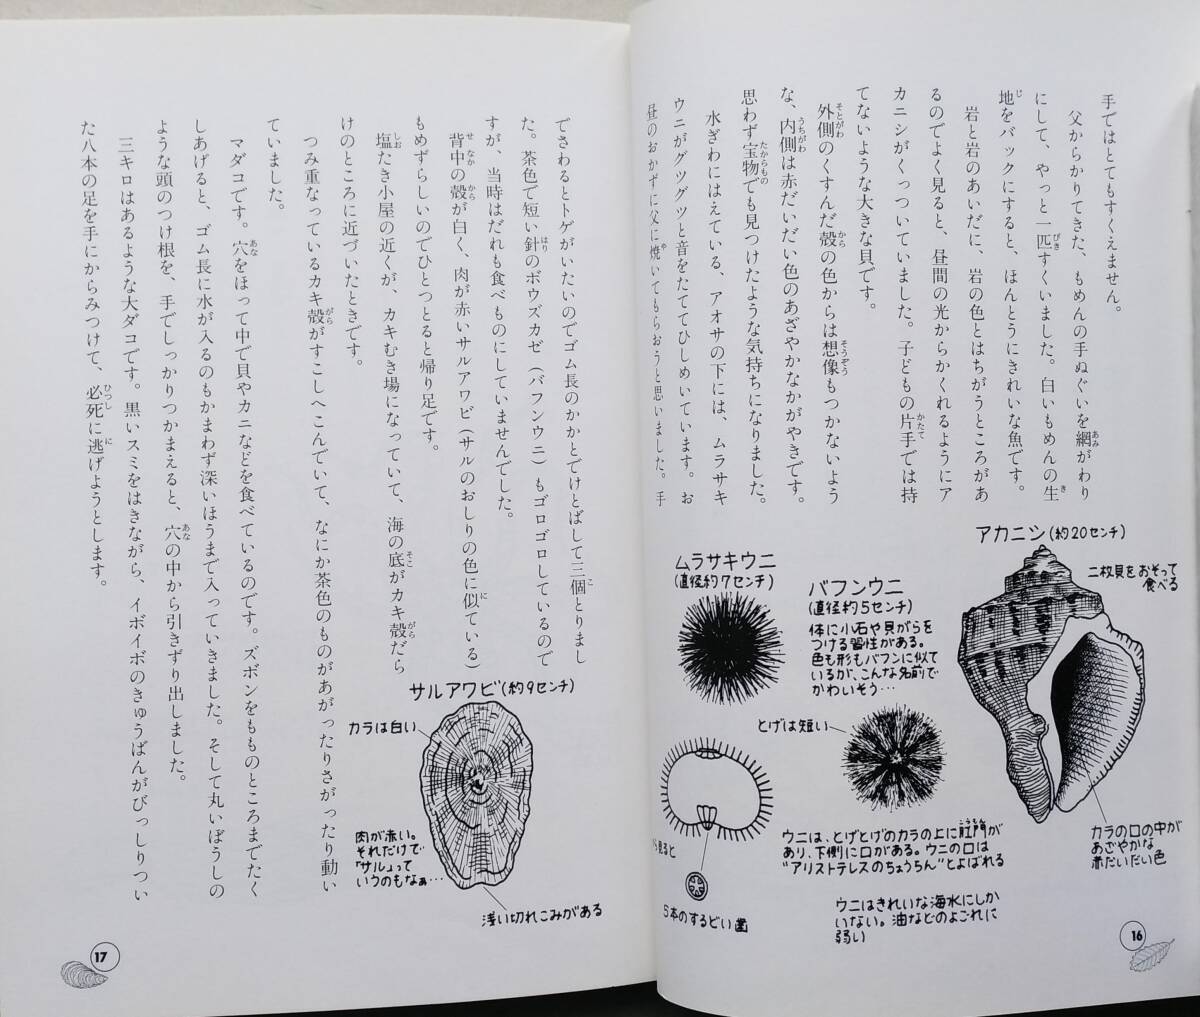 手ではとてもすくえません。
父からかりてきた、もめんの手ぬぐいを網がわり
にして、やっと一匹すくいました。白いもめんの生
地をバックにすると、ほんとうにきれいな魚です。
岩と岩のあいだに、岩の色とはちがうところがあ
るのでよく見ると、昼間の光からかくれるようにア
カニシがくっついていました。子どもの片手では持
てないような大きな貝です。
外側のくすんだ殻の色からは想像もつかないよう
な、内側は赤だいだい色のあざやかなかがやきです。
思わず宝物でも見つけたような気持ちになりました。
水ぎわにはえている、アオサの下には、ムラサキ
ウニがグツグツと音をたててひしめいています。お
昼のおかずに父に焼いてもらおうと思いました。手
アカニシ(約20センチ)
二枚貝をおそって
食べる
カラの口の中が
あざやかな
赤だいだい色
バフンウニ
(直径約5センチ)
体に小石や貝がらを
つける習性がある。
色も形もバフンに似て
いるが、こんな名前で
かわいそう…
とげは短い
ムラサキウニ
(直径約7センチ)
ウニは、とげとげのカラの上に肛門が
あり、下側に口がある。ウニの口は
"アリストテレスのちょうちん"とよばれる
ら見ると
5本のするどい歯
ウニはきれいな海水にしか
いない。油などのよごれに
弱い
16
でさわるとトゲがいたいのでゴム長のかかとでけとばして三個とりまし
た。茶色で短い針のボウズカゼ(バフンウニ)もゴロゴロしているので
すが、当時はだれも食べものにしていませんでした。
背中の殻が白く、肉が赤いサルアワビ(サルのおしりの色に似ている)
もめずらしいのでひとつとると帰り足です。
塩たき小屋の近くが、カキむき場になっていて、海の底がカキ殻だら
けのところに近づいたときです。
つみ重なっているカキ殻がすこしへこんでいて、なにか茶色のものがあがったりさがったり動い
ていました。
マダコです。穴をほって中で貝やカニなどを食べているのです。ズボンをもものところまでたく
しあげると、ゴム長に水が入るのもかまわず深いほうまで入っていきました。そして丸いぼうしの
ような頭のつけ根を、手でしっかりつかまえると、穴の中から引きずり出しました。
三キロはあるような大ダコです。黒いスミをはきながら、イボイボのきゅうばんがびっしりつい
た八本の足を手にからみつけて、必死に逃げようとします。
サルアワビ(約9センチ)
カラは白い
肉が赤い。
それだけで
「サル」って
いうのもなぁ…
浅い切れこみがある
17